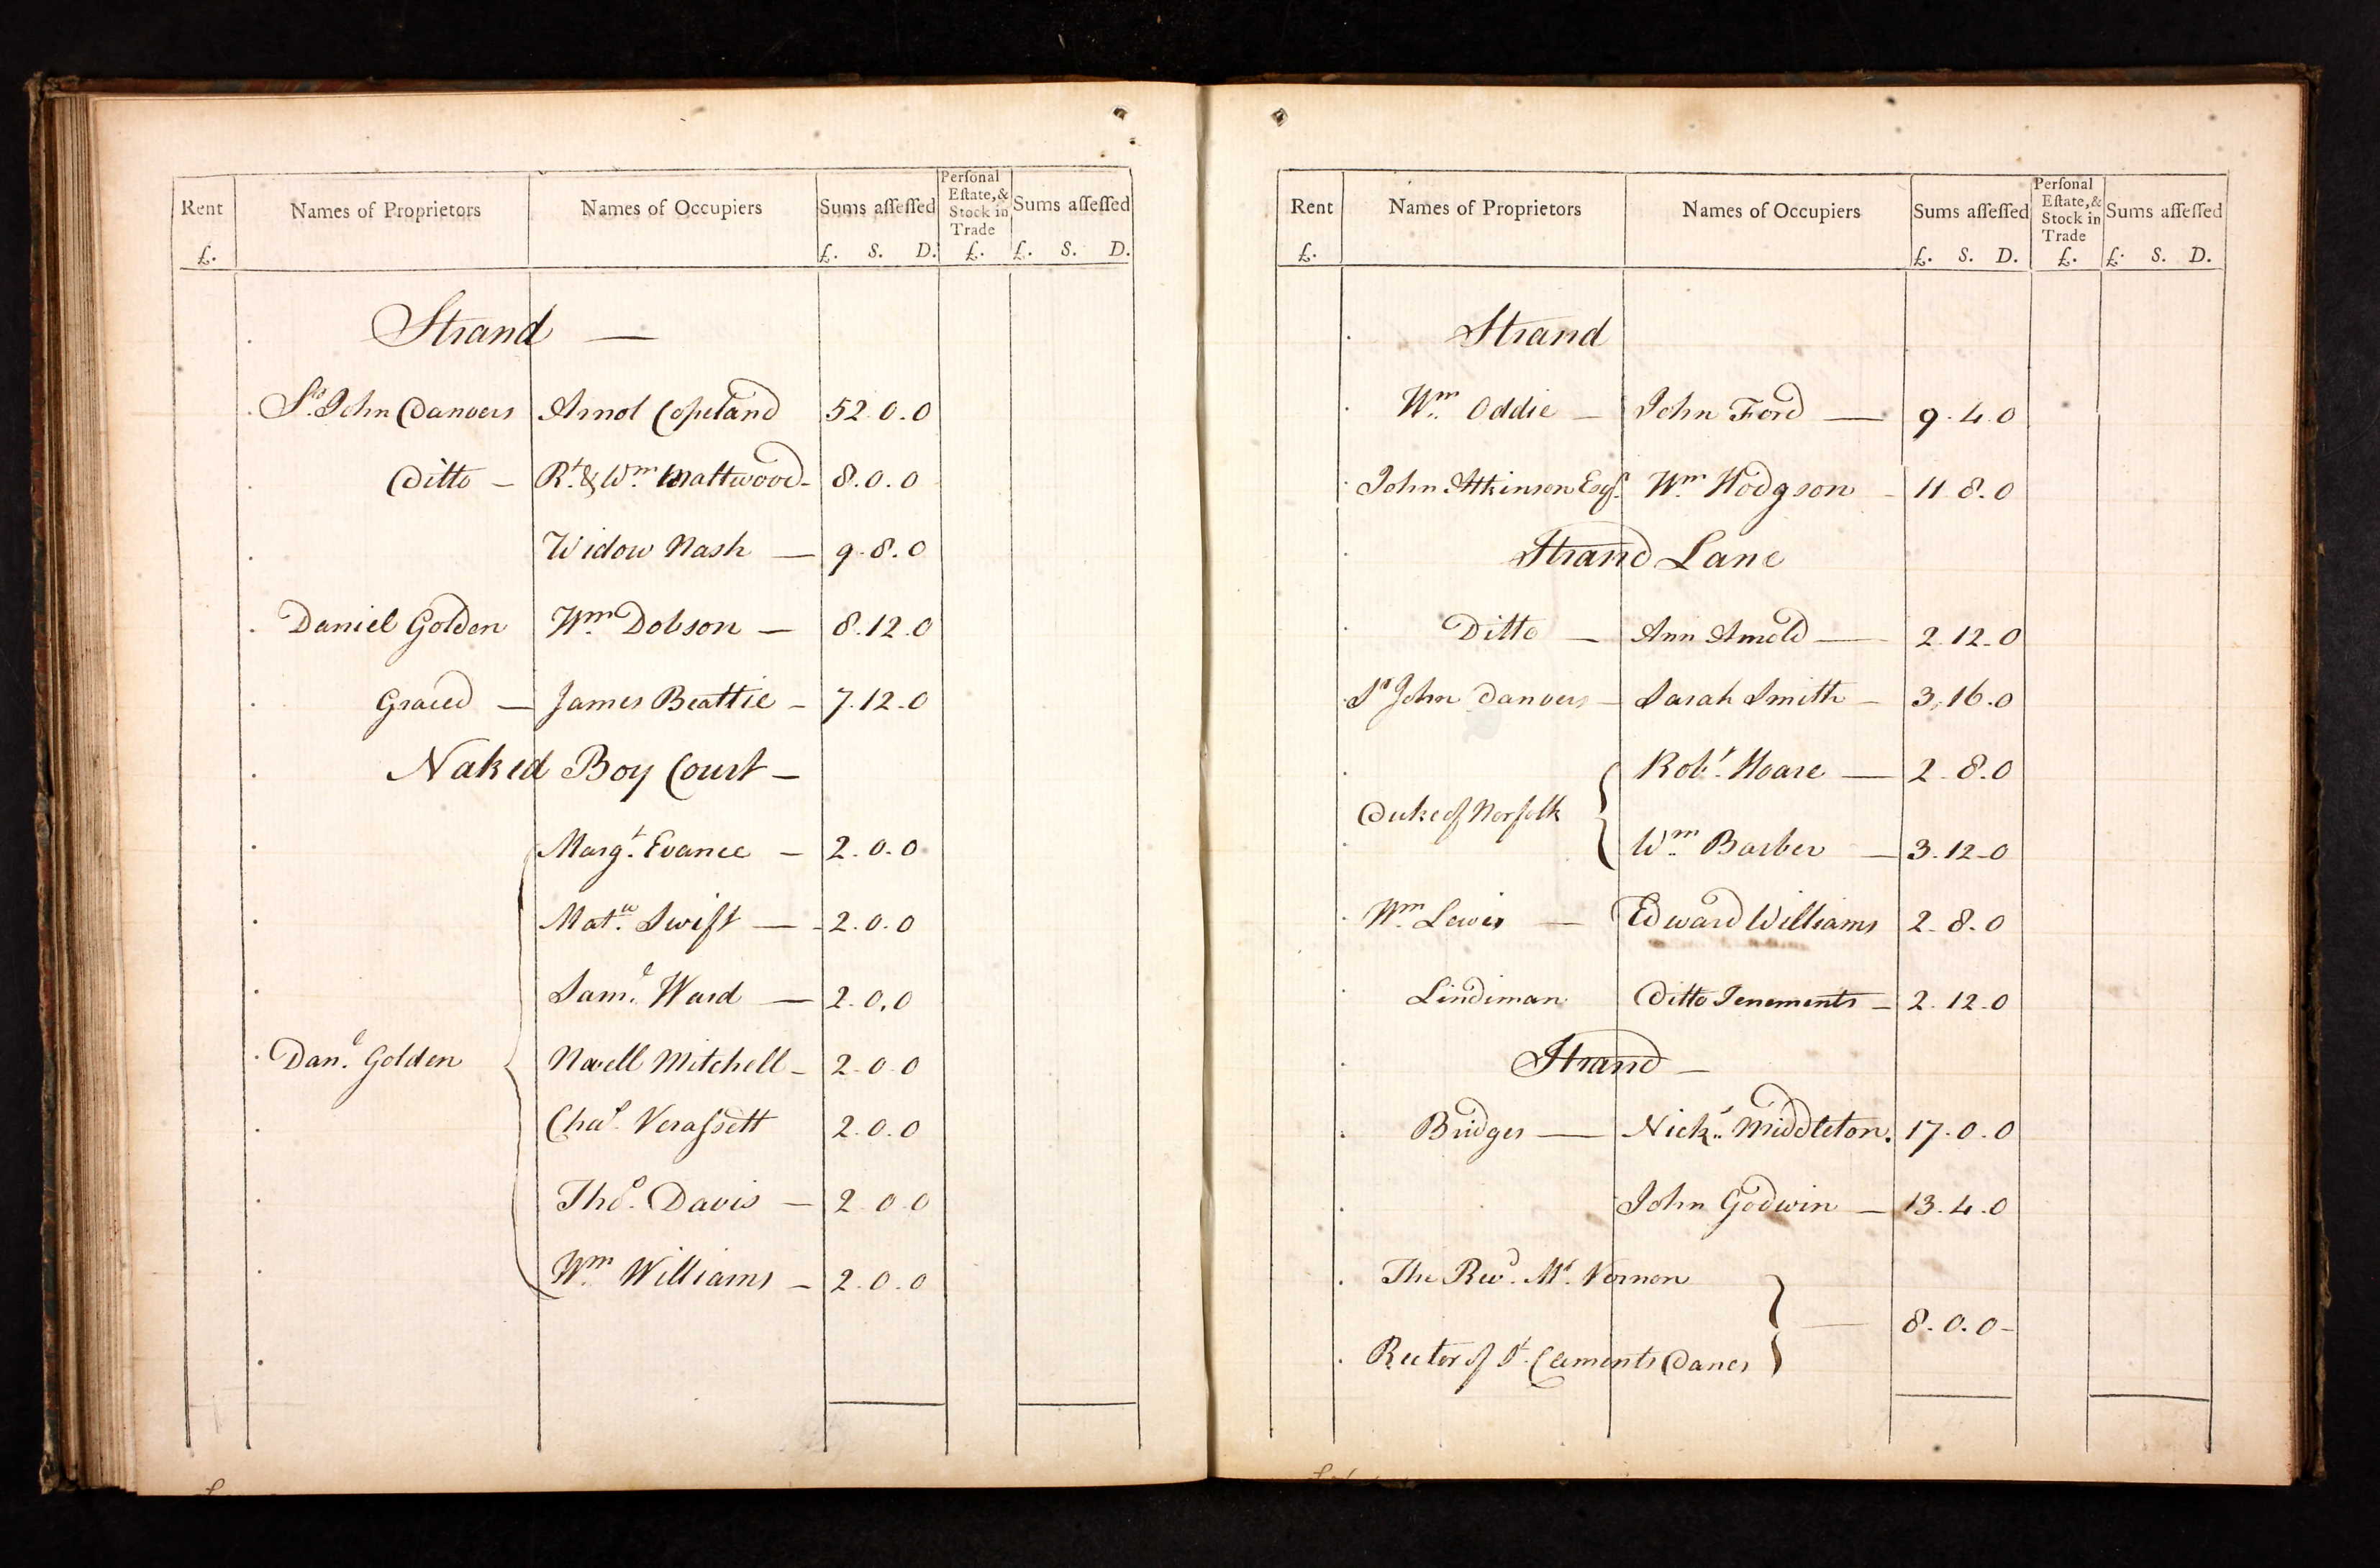 Rent Names of Proprietors Names of Occupiers Sums aſſeſſed Perſonal Eſtate, & Stock in Trade Sums aſſeſſed
£. £. S. D. £. £. S. D.
Strand —
Sr. John Danvers Arnol Copeland 52.0.0
Ditto — Rt. & Wm. Mattwood - 8.0.0
Widow Nash — 9.8.0
Daniel Golden Wm. Dobson — 8.12.0
Graced — James Beattie - 7.12.0
Naked Boy Court —
Margt. Evance - 2.0.0
Matw. Swift — 2.0.0
Saml. Ward — 2.0.0
Danl. Golden Mitchell - 2.0.0
Chas. Veraſsett 2.0.0
Thos. Davis — 2.0.0
Wm. Williams - 2.0.0
Rent Names of Proprietors Names of Occupiers Sums aſſeſſed Perſonal Eſtate, & Stock in Trade Sums aſſeſſed
£. £. S. D. £. £. S. D.
Strand
Wm. Oddie - John Ford — 9.4.0
John Atkinson Esqr. Wm. Hodgson - 11.8.0
Strand Lane
Ditto — Ann Arnold — 2.12.0
Sr John Danvers - Sarah Smith - 3.16.0
Robt. Hoare — 2.8.0
Duke of Norfolk
Wm. Barber — 3.12.0
Wm. Lewis — Edward Williams 2.8.0
Lindiman Ditto Tenements - 2.12.0
Strand —
Bridges — Nichs. Middleton. 17.0.0
John Godwin — 13.4.0
The Revd. Mr. Vernon
8.0.0-
Rector of St. Clements Danes